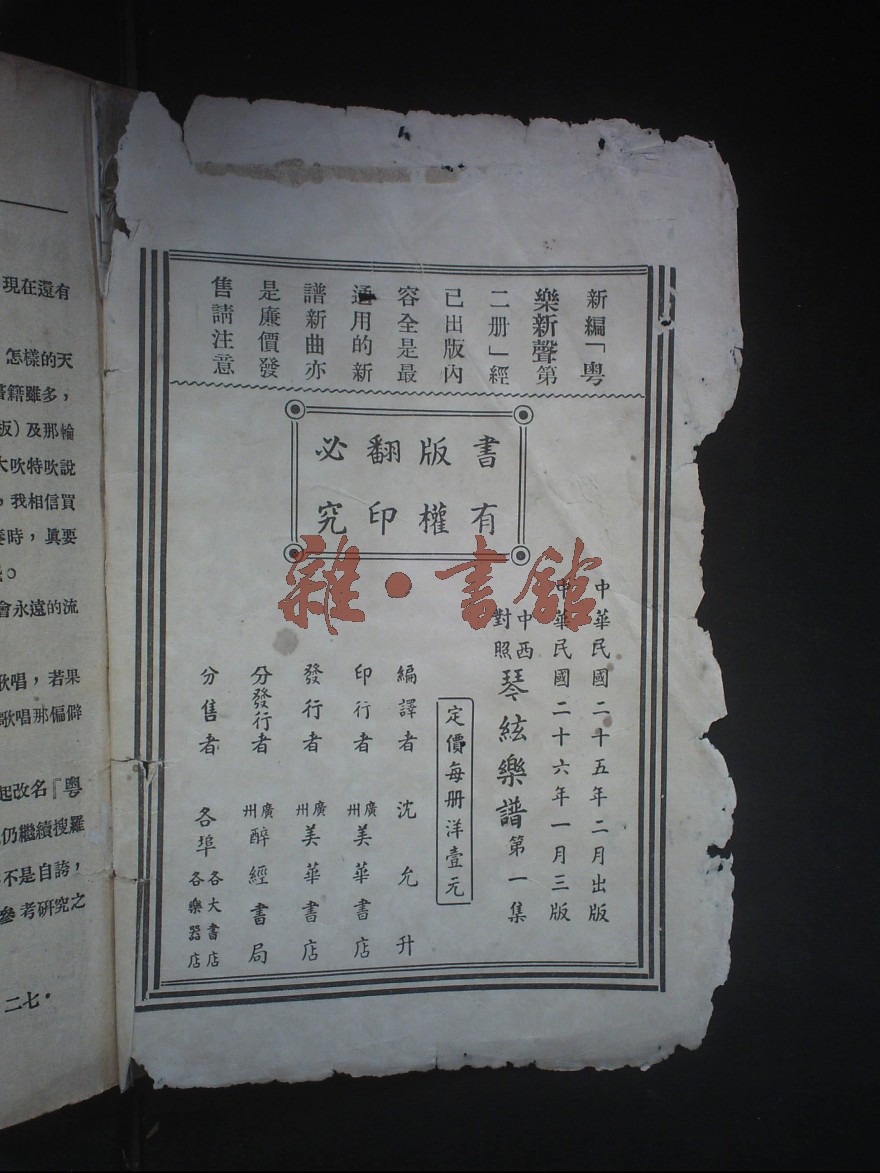 新編「粵
樂新聲第
二册」經
已出版內
容全是最
通用的新
譜新曲亦
是廉價發
售請注意
書有
版權
翻印
必究
中華民國二十五年二月出版
中華民國二十六年一月三版
中西對照琴絃樂譜第一集
定價每册洋壹元
編譯者 沈允升
印行者 廣州美華書店
發行者 廣州美華書店
分發行者 廣州醉經書局
分售者 各埠各大書店各樂器店
雜·書舘
現在還有
怎樣的天
書籍雖多，
板）及那輪
大吹特吹說
，我相信買
奏時，眞要
。
會永遠的流
歌唱，若果
歌唱那偏僻
起改名『粵
仍繼續搜羅
不是自誇，
參考研究之
二七·